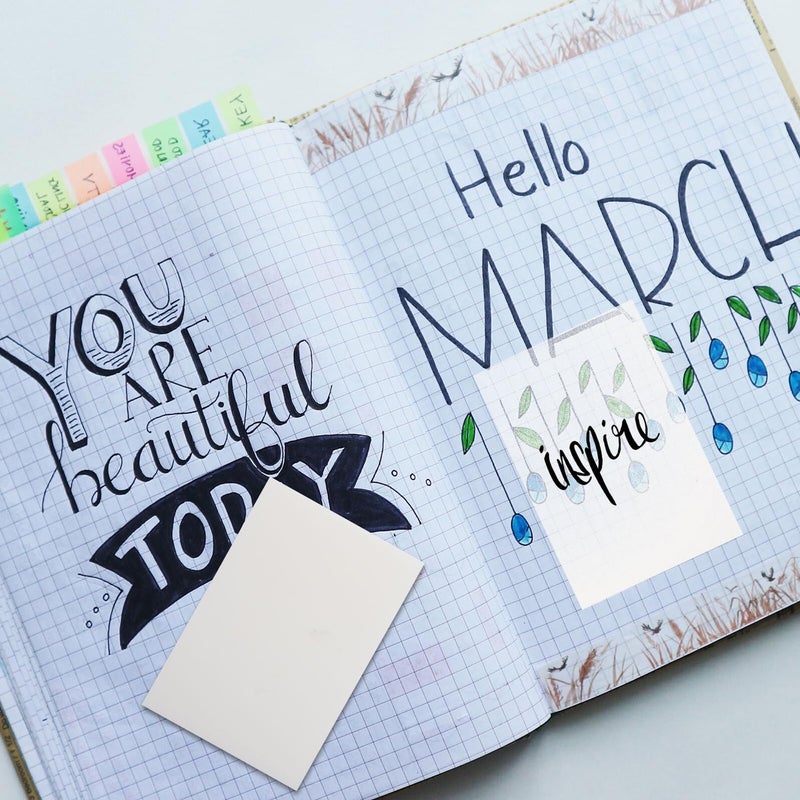 YOU
ARE
beautiful
TODAY
Hello
MARCH
inspire
KEY